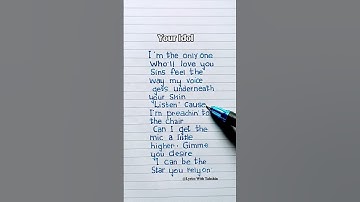 Your Idol
I'm the only one
Who'll love you
Sins feel the
way my voice
gets underneath
your Skin
"Listen' Cause
I'm preachin to
the Chair
Can I get the
mic a little
higher. Gimme
you desire
"I can be the
Star you rely on